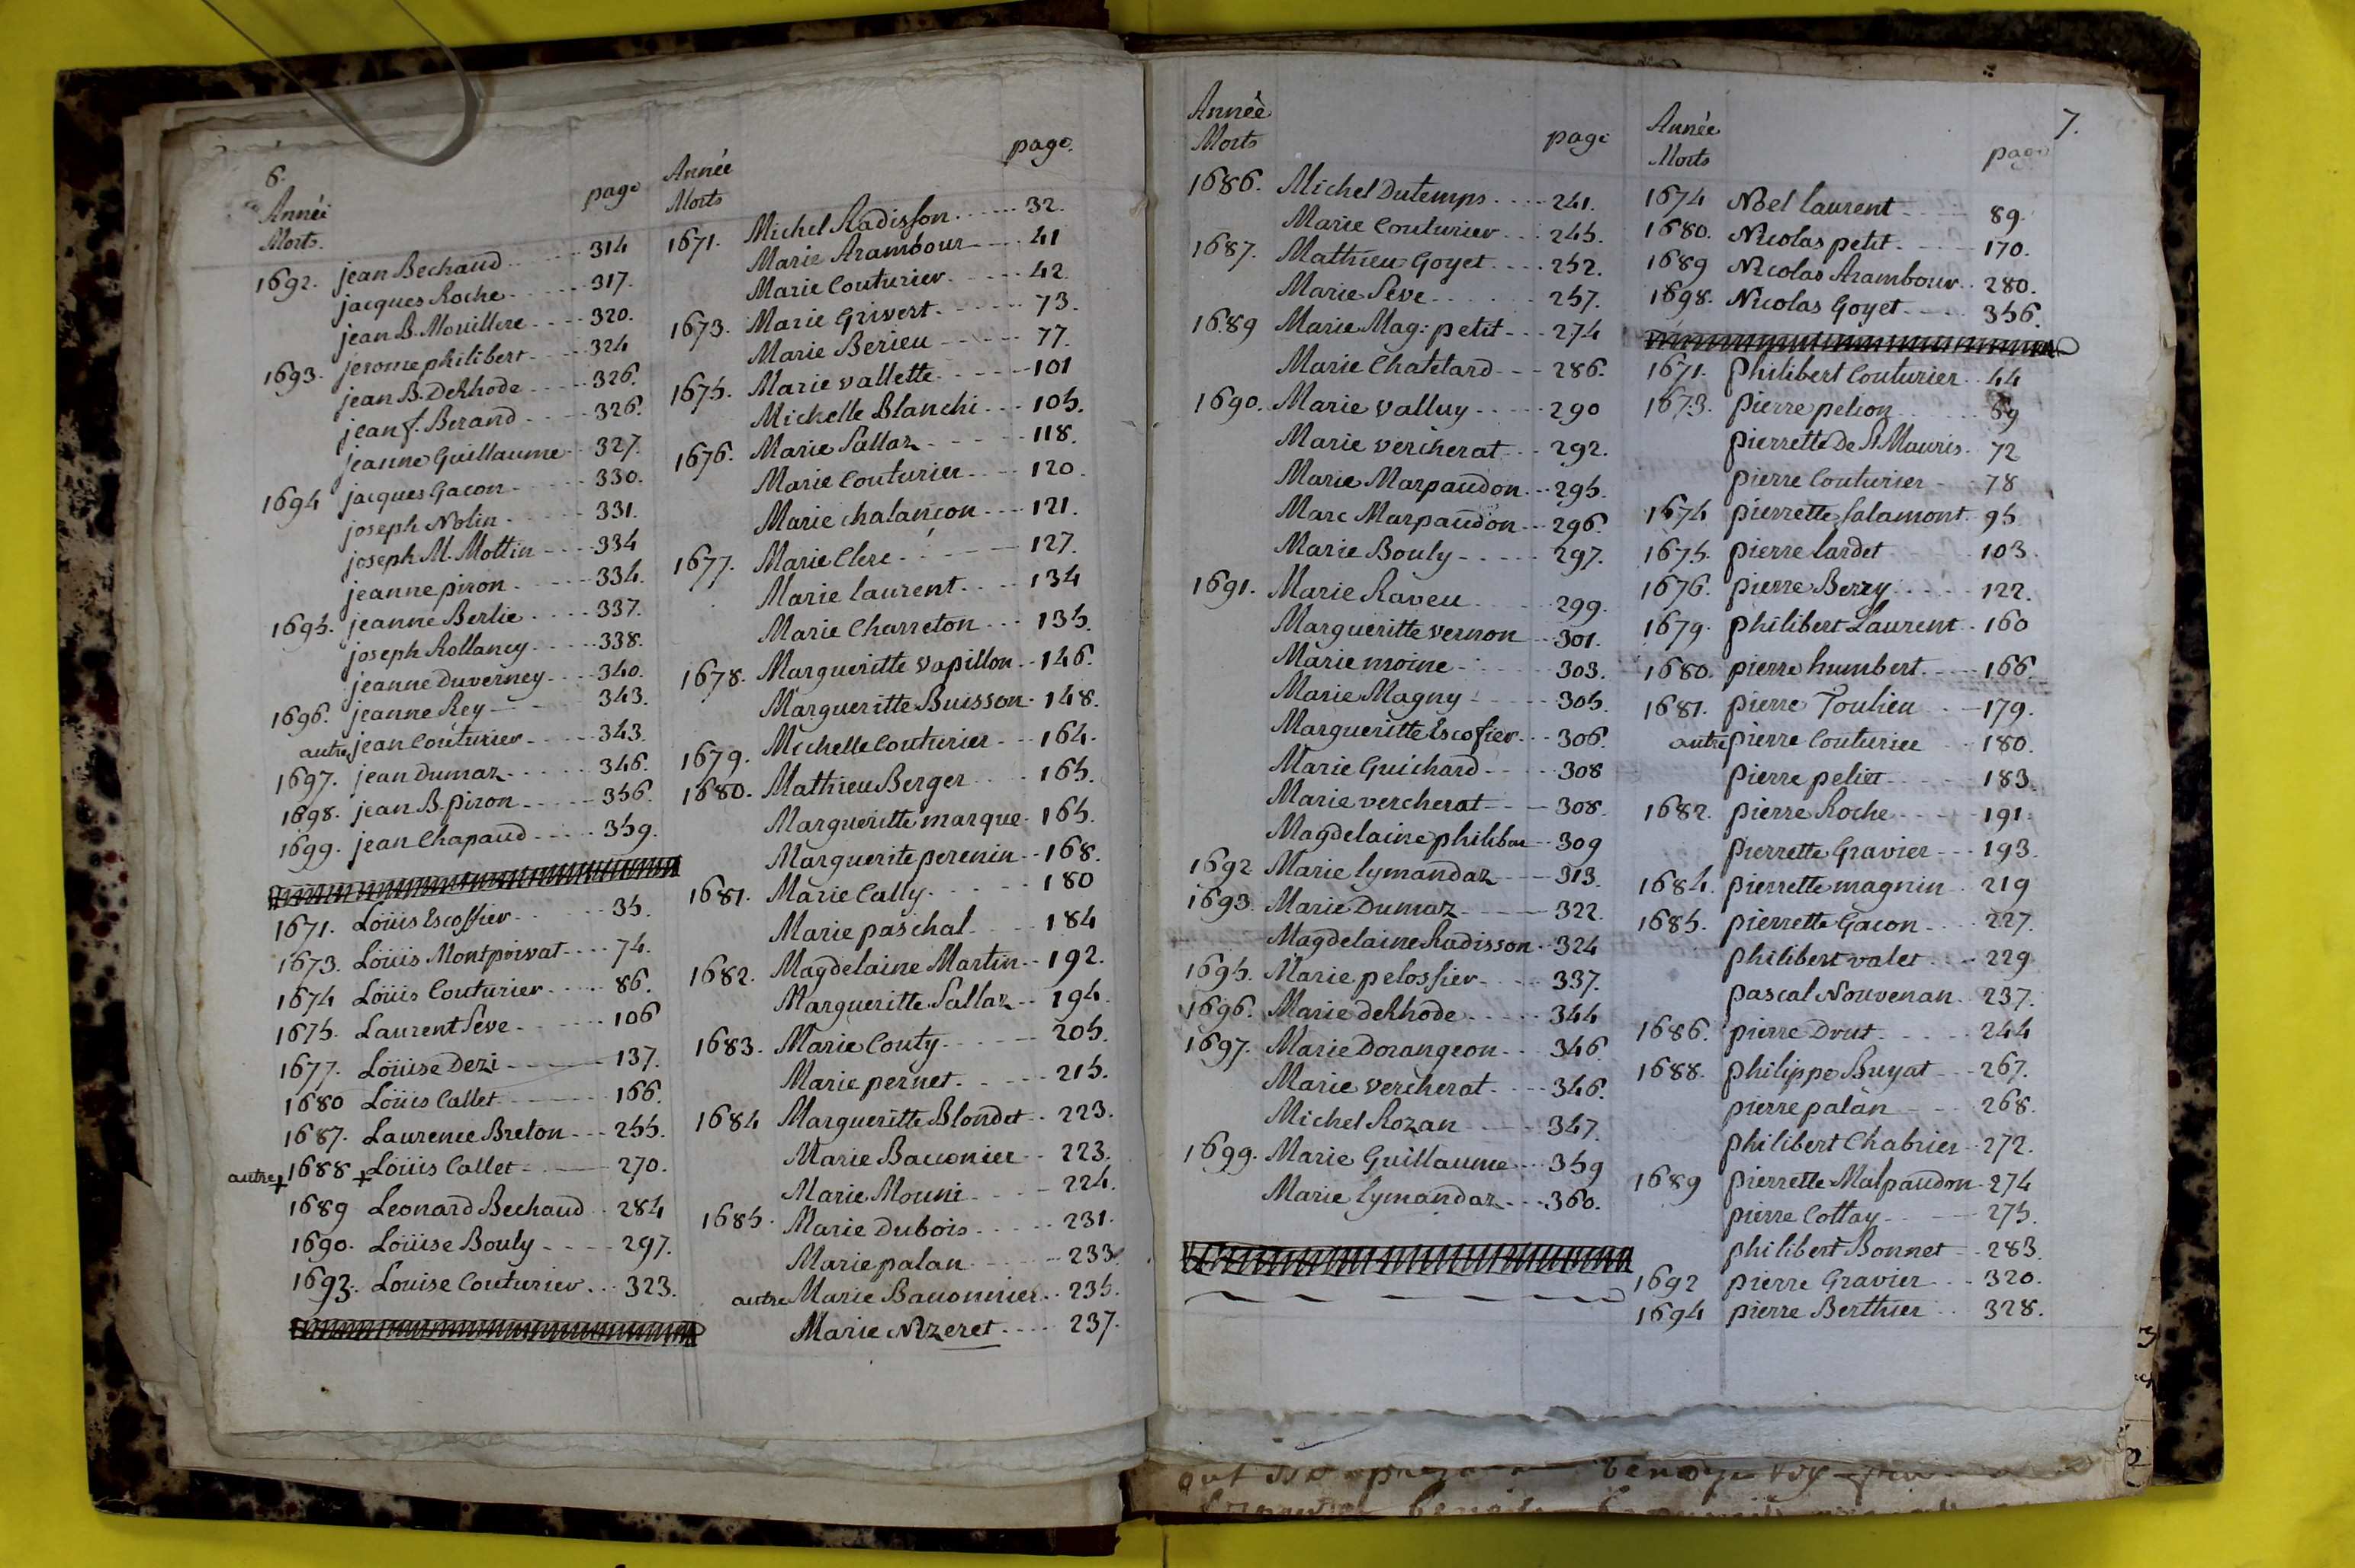 6.
Année
Morts. page
1692. jean Bechaud 314
jacques Roche 317.
jean B. Mouillere 320.
1693. jerome philibert 324
jean B. DeRhode 326.
jean f. Berand 326.
jeanne Guillaume 327.
1694 jacques Gacon 330.
joseph Nolin 331.
joseph M. Mottin 334
jeanne piron 334.
1695. jeanne Berlie 337.
joseph Rollancy 338.
jeanne Duverney 340.
1696. jeanne Rey 343.
autre jean Couturier 343.
1697. jean Dumaz 346.
1698. jean B. piron 356.
1699. jean Chapaud 359.
1671. Loüis Escoffier 35.
1673. Loüis Montpoivat 74.
1674 Loüis Couturier 86.
1675. Laurent Seve 106
1677. Loüise Dezi 137.
1680 Loüis Callet 166.
1687. Laurence Breton 255.
autre+ 1688 + Loüis Callet 270.
1689 Leonard Bechaud 284
1690. Loüise Bouly 297.
1693. Louise Couturier 323.
Année
Morts page.
1671. Michel Radisson 32.
Marie Arambour 41
Marie Couturier 42
1673. Marie Grivert 73.
Marie Berieu 77.
1675. Marie vallette 101
Michelle Blanchi 105.
1676. Marie Sallaz 118.
Marie Couturier 120.
Marie chalancon 121.
1677. Marie Clerc 127.
Marie laurent 134
Marie Charreton 135.
1678. Margueritte vapillon 146.
Margueritte Buisson 148.
1679. Michelle Couturier 164.
1680. Mathieu Berger 165.
Margueritte marque 165.
Marguerite perenin 168.
1681. Marie Cally 180
Marie paschal 184
1682. Magdelaine Martin 192.
Margueritte Sallaz 194.
1683. Marie Couty 205.
Marie pernet 215.
1684 Margueritte Blondet 223.
Marie Bauonier 223.
Marie Mouni 224.
1685. Marie Dubois 231.
Marie palan 233
autre Marie Bauonnier 235.
Marie Nizeret 237.
7.
Année
Morts page
1686. Michel Dutemps 241.
Marie Couturier 245.
1687. Mathieu Goyet 252.
Marie Seve 257.
1689 Marie Mag: petit 274
Marie Chatelard 286.
1690. Marie valluy 290
Marie vercherat 292.
Marie Marpaudon 295.
Marc Marpaudon 296.
Marie Bouly 297.
1691. Marie Raveu 299.
Margueritte vernon 301.
Marie moine 303.
Marie Magny 305.
Margueritte Escofier 306.
Marie Guichard 308
Marie vercherat 308.
Magdelaine philiber 309
1692 Marie lymandaz 313.
1693. Marie Dumaz 322.
Magdelaine Radisson 324
1695. Marie pelossier 337.
1696. Marie deRhode 344
1697. Marie Dorangeon 346.
Marie vercherat 346.
Michel Rozan 347.
1699. Marie Guillaume 359
Marie lymandaz 360.
Année
Morts page
1674 Noel laurent 89.
1680. Nicolas petit 170.
1689 Nicolas Arambour 280.
1698. Nicolas Goyet 356.
1671. philibert Couturier 44
1673. pierre pelion 69
pierrette De St Mauris 72
pierre Couturier 78
1674 pierrette Salamont 95
1675. pierre lardet 103.
1676. pierre Berry 122.
1679. philibert Laurent 160
1680. pierre humbert 166.
1681. pierre Toulieu 179.
autre pierre Couturier 180.
pierre peliet 183.
1682. pierre Roche 191.
pierrette Gravier 193.
1684. pierrette magnin 219
1685. pierrette Gacon 227.
philibert valet 229
pascal Nouvenan 237.
1686. pierre Drut 244
1688. philippe Buyat 267.
pierre palan 268.
philibert Chabrier 272.
1689 pierrette Malpaudon 274
pierre Cottay 275.
philibert Bonnet 283.
1692 pierre Gravier 320.
1694 pierre Berthier 328.